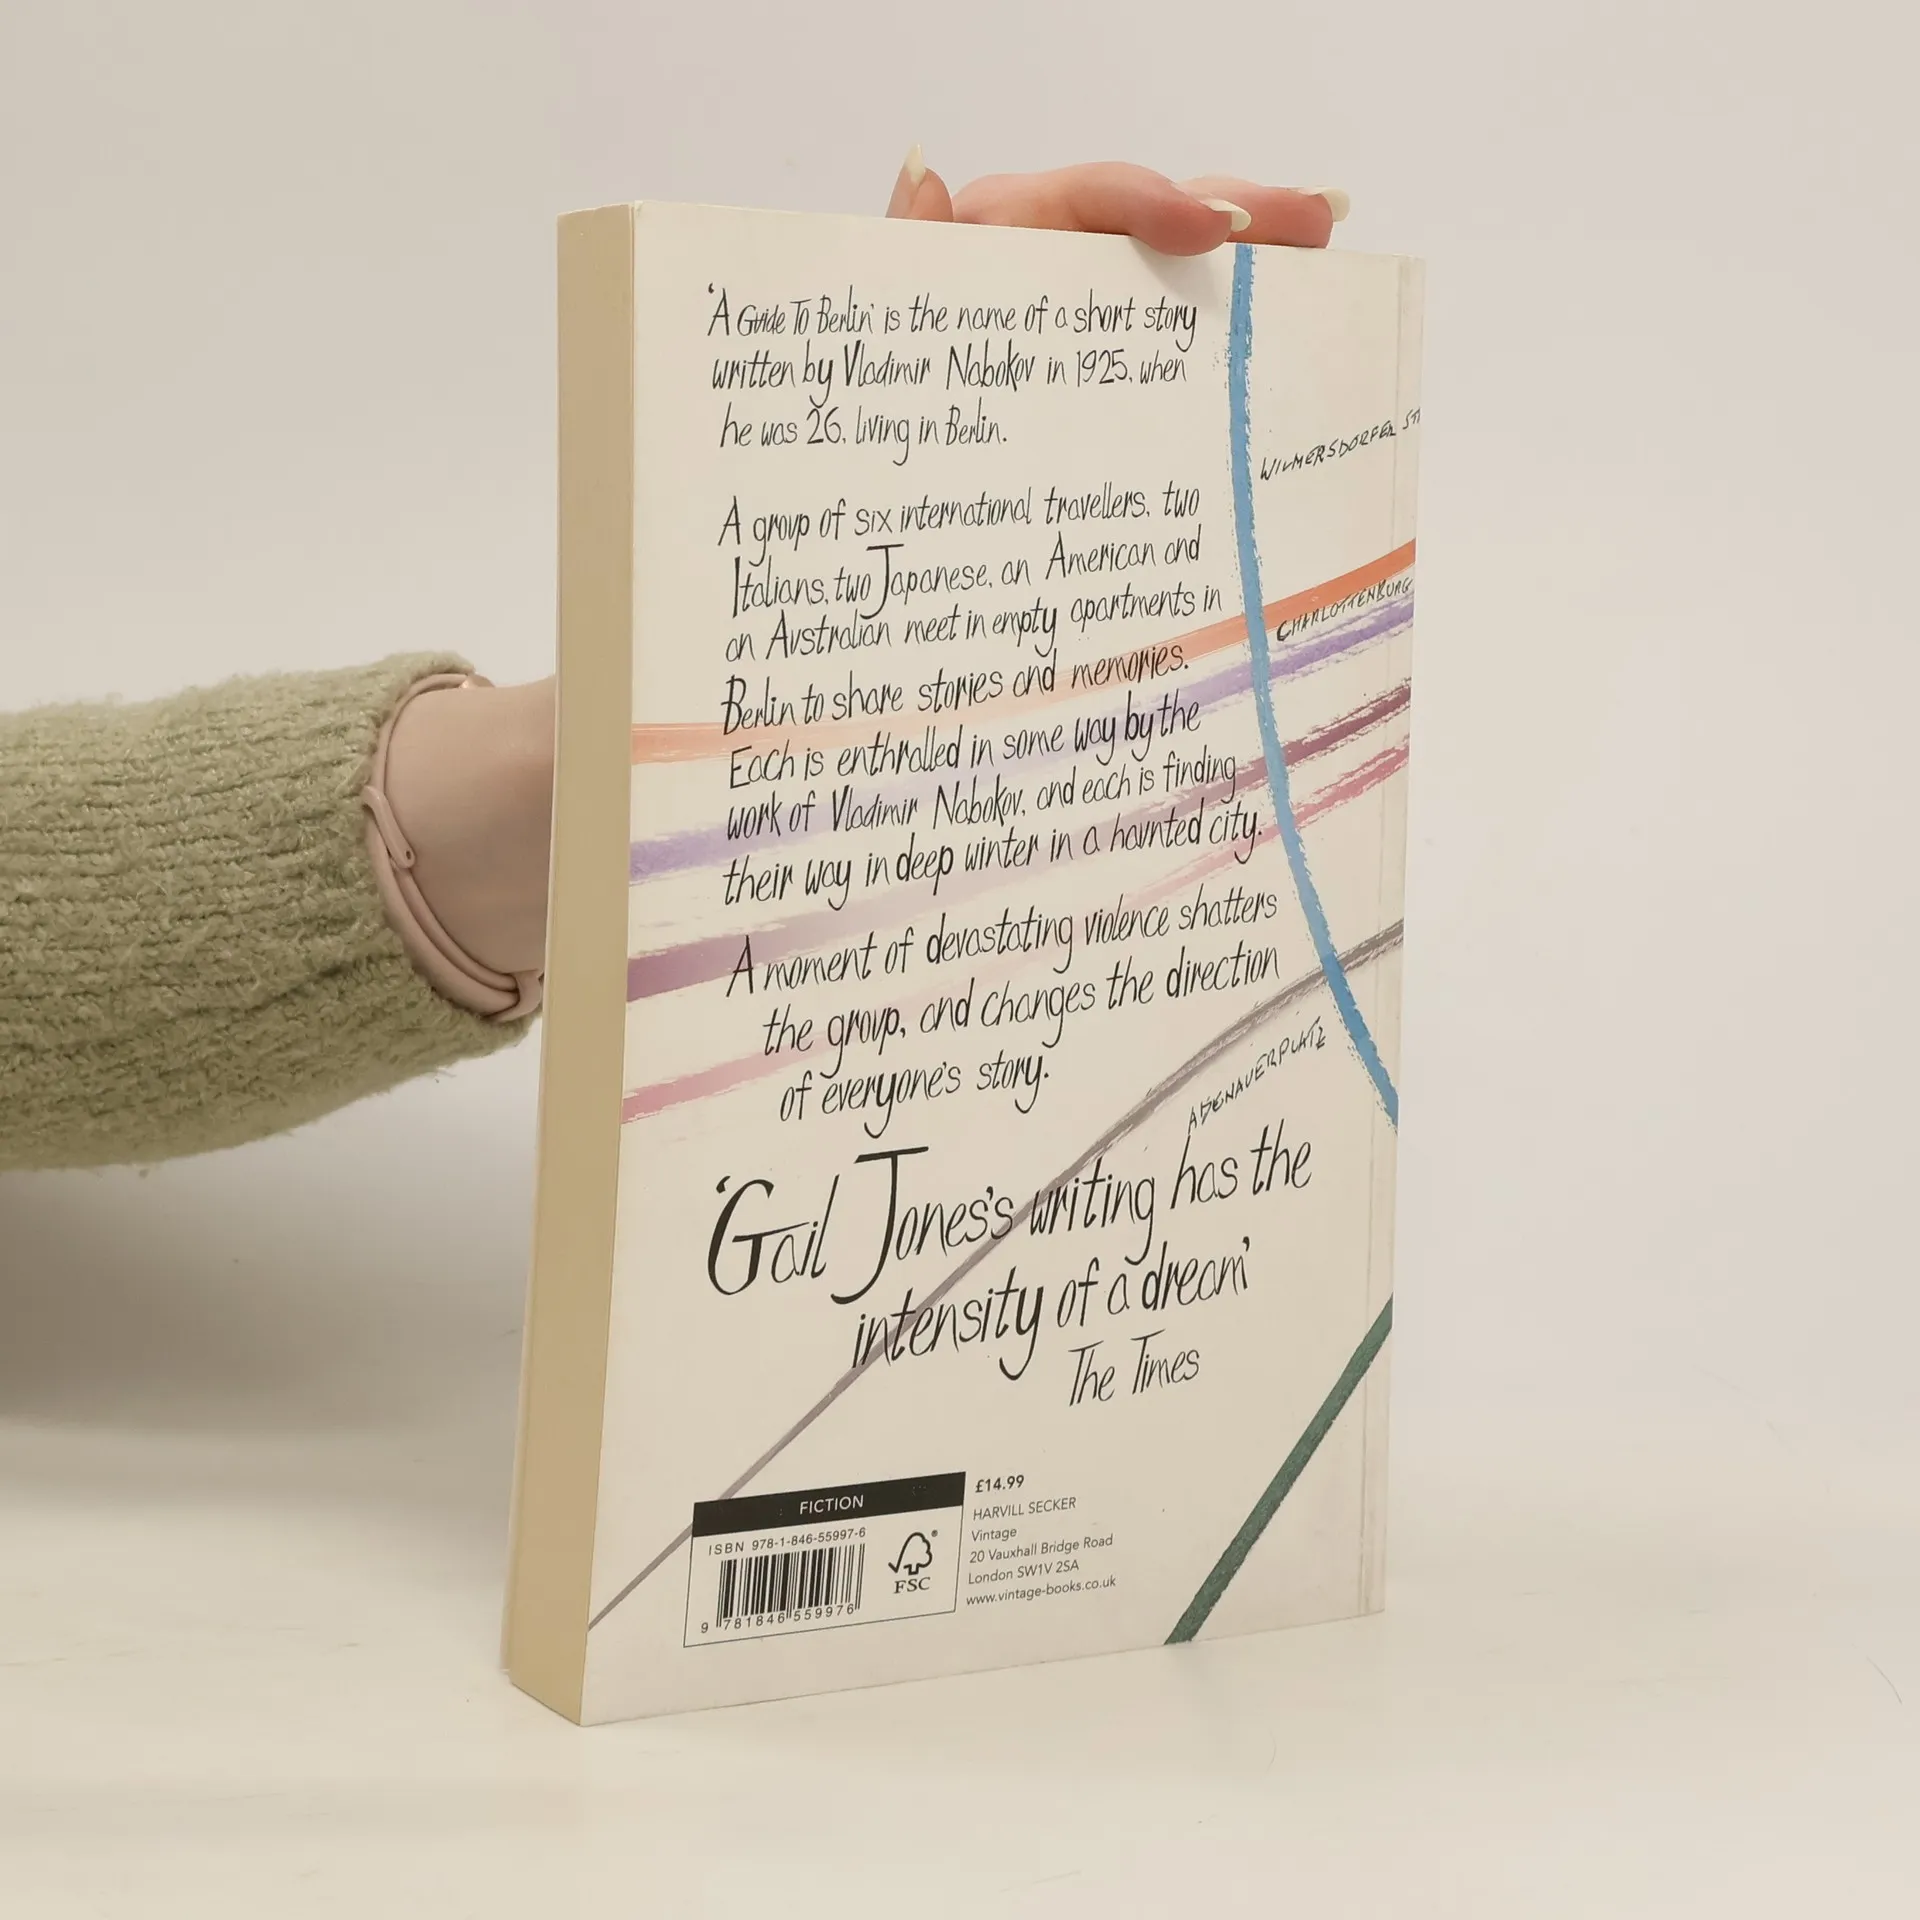 'A Guide To Berlin' is the name of a short story
written by Vladimir Nabokov in 1925, when
he was 26, living in Berlin.
A group of six international travellers, two
Italians, two Japanese, an American and
an Australian meet in empty apartments in
Berlin to share stories and memories.
Each is enthralled in some way by the
work of Vladimir Nabokov, and each is finding
their way in deep winter in a haunted city.
A moment of devastating violence shatters
the group, and changes the direction
of everyone's story.
'Gail Jones's writing has the
intensity of a dream'
The Times
WILMERSDORFER ST
CHARLOTTENBURG
ADENAUERPLATZ
FICTION
ISBN 978-1-846-55997-6
9 781846 559976
FSC
£14.99
HARVILL SECKER
Vintage
20 Vauxhall Bridge Road
London SW1V 2SA
www.vintage-books.co.uk